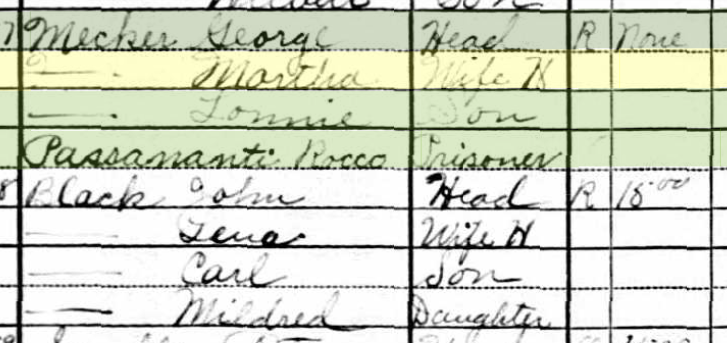 Son
7 Mecker George Head R None
— Martha Wife H
— Lonnie Son
Passananti Rocco Prisoner
8 Black John Head R 18.00
— Lena Wife H
— Carl Son
— Mildred Daughter